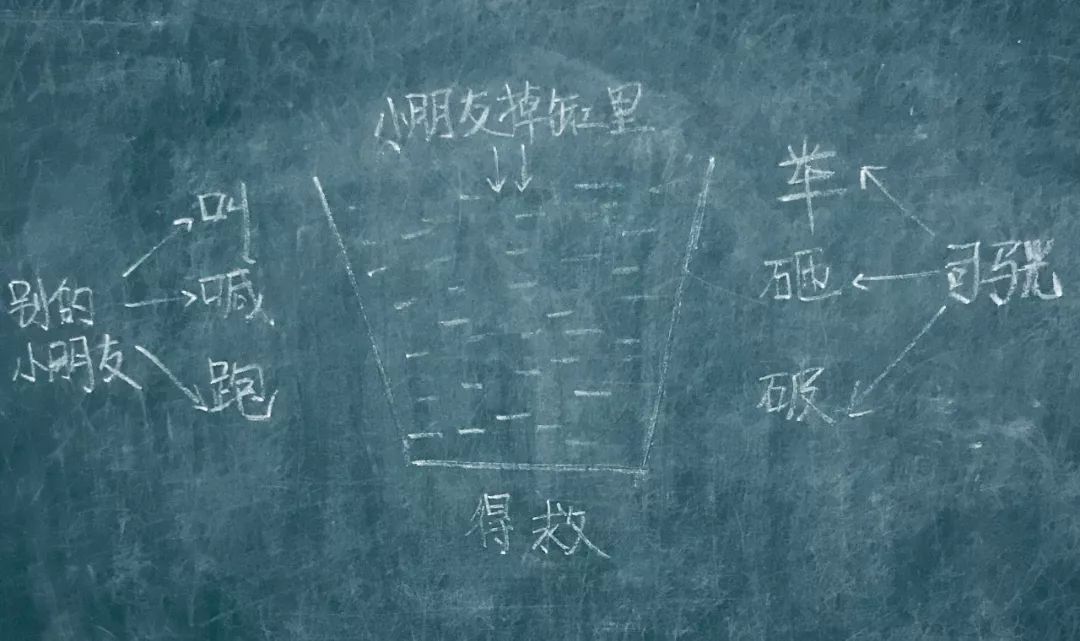 小朋友掉缸里
别的
小朋友
叫
喊
跑
举
砸
破
司马光
得救